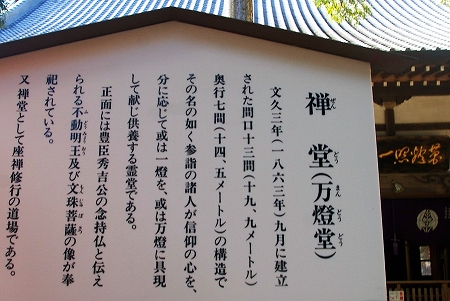 禅堂(万燈堂)
文久三年(一八六三年)九月に建立
された間口十三間(十九、九メートル)
奥行七間(十四、五メートル)の構造で
その名の如く参詣の諸人が信仰の心を、
分に応じて或は一燈を、或は万燈に具現
して献じ供養する霊堂である。
正面には豊臣秀吉公の念持仏と伝え
られる不動明王及び文珠菩薩の像が奉
祀されている。
又禅堂として座禅修行の道場である。